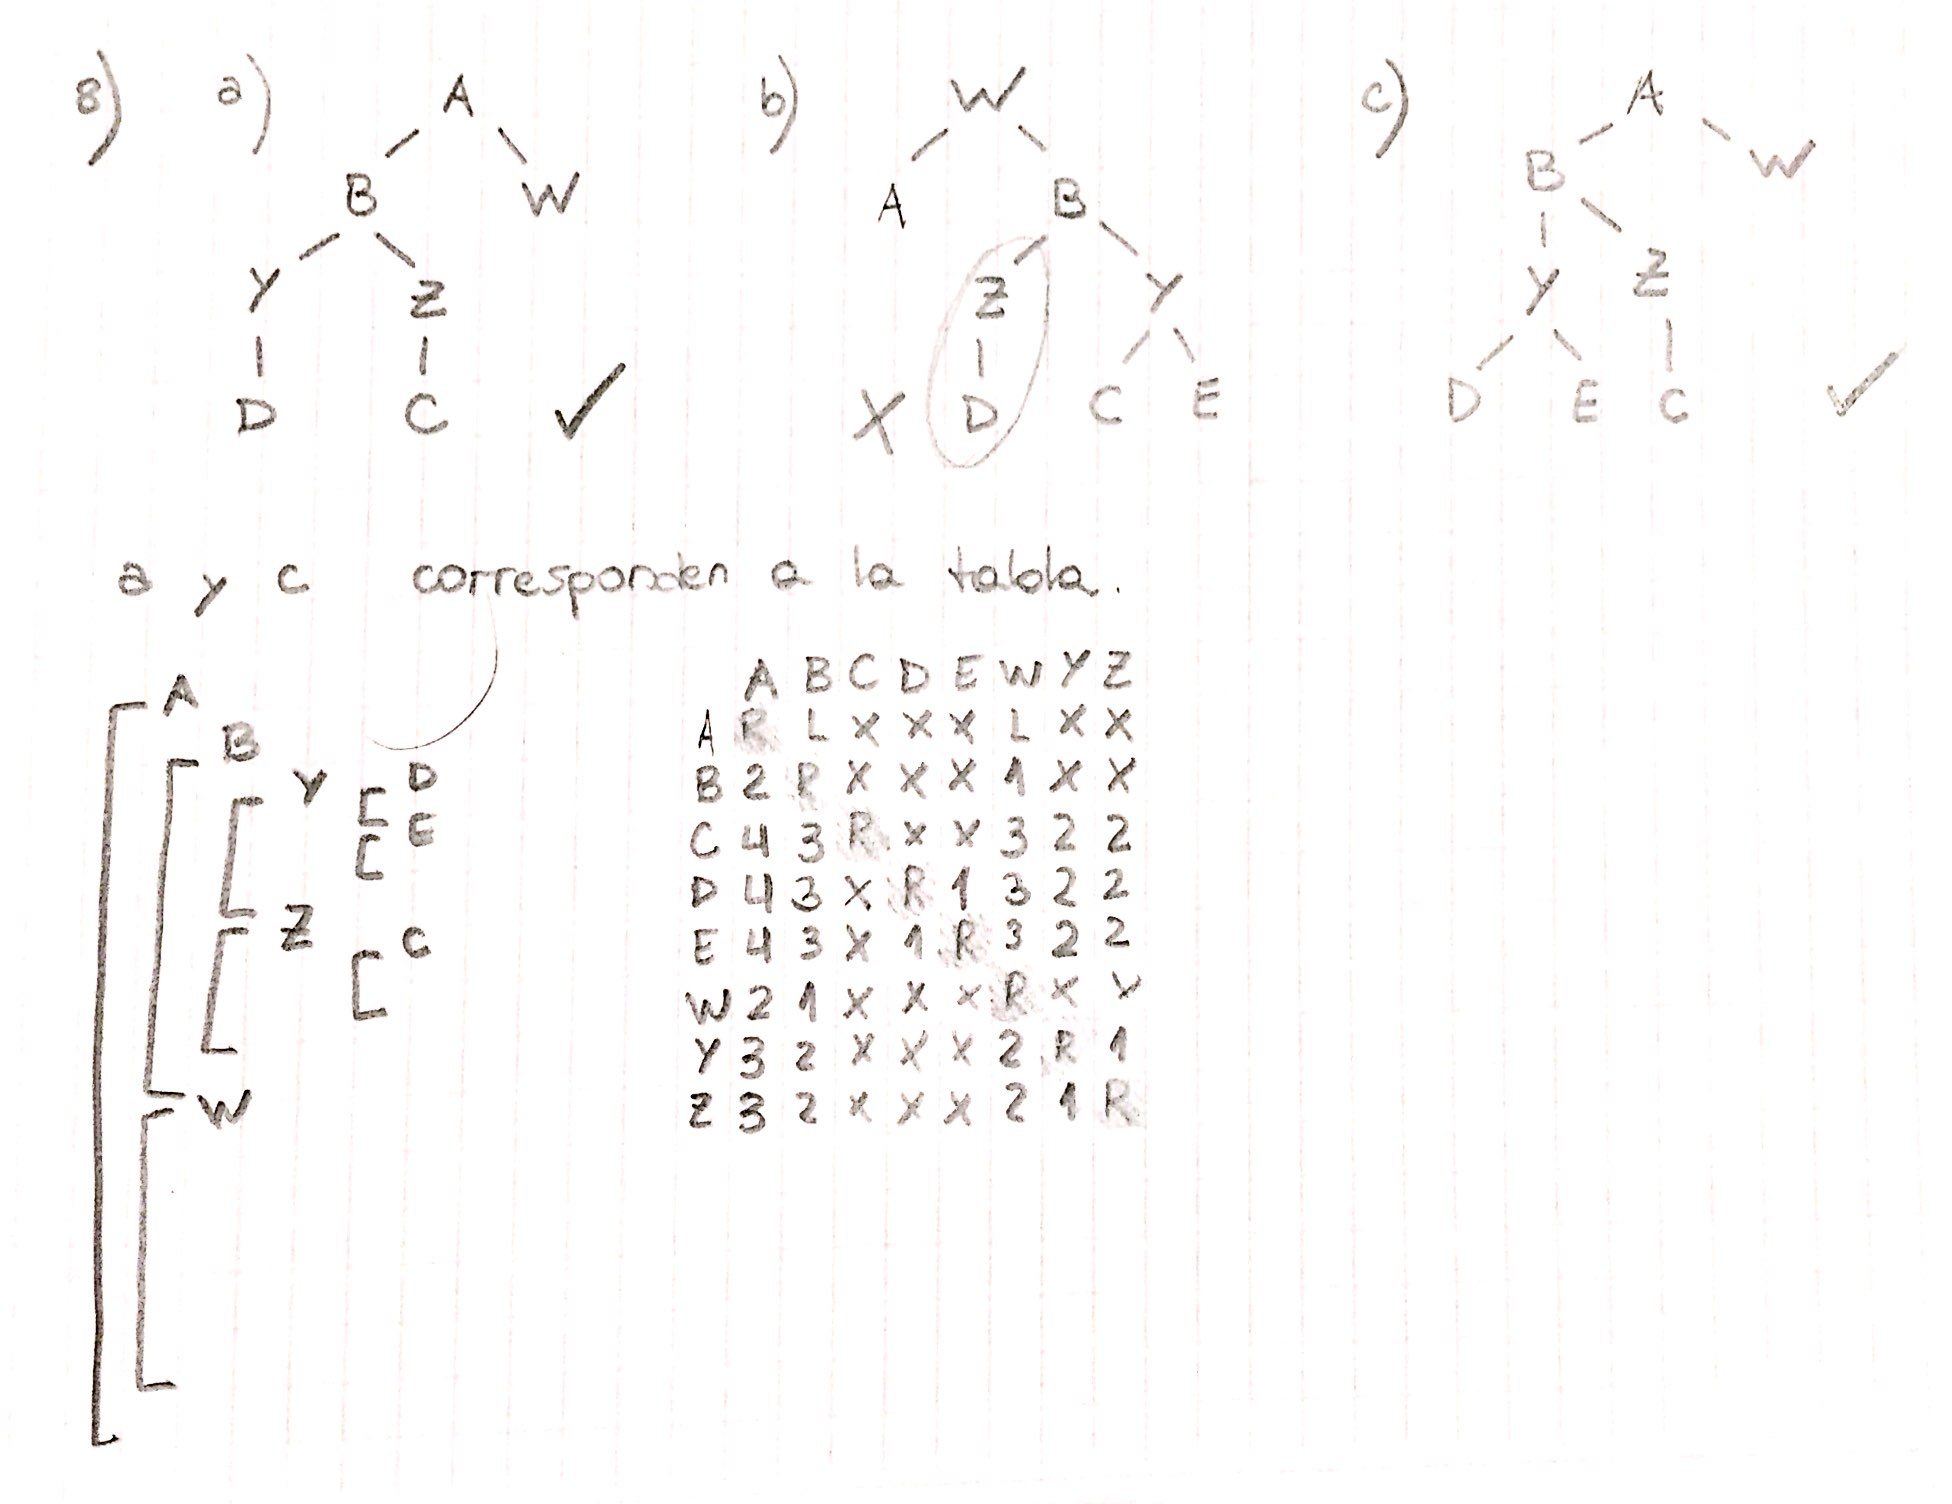 8) a) A b) W c) A
B W A B B W
Y Z Z Y Y Z
D C ✓ X D C E D E C ✓
a y c corresponden a la tabla.
A
B
Y D
E
Z C
W
A B C D E W Y Z
A R L X X X L X X
B 2 R X X X 1 X X
C 4 3 R X X 3 2 2
D 4 3 X R 1 3 2 2
E 4 3 X 1 R 3 2 2
W 2 1 X X X R X X
Y 3 2 X X X 2 R 1
Z 3 2 X X X 2 1 R